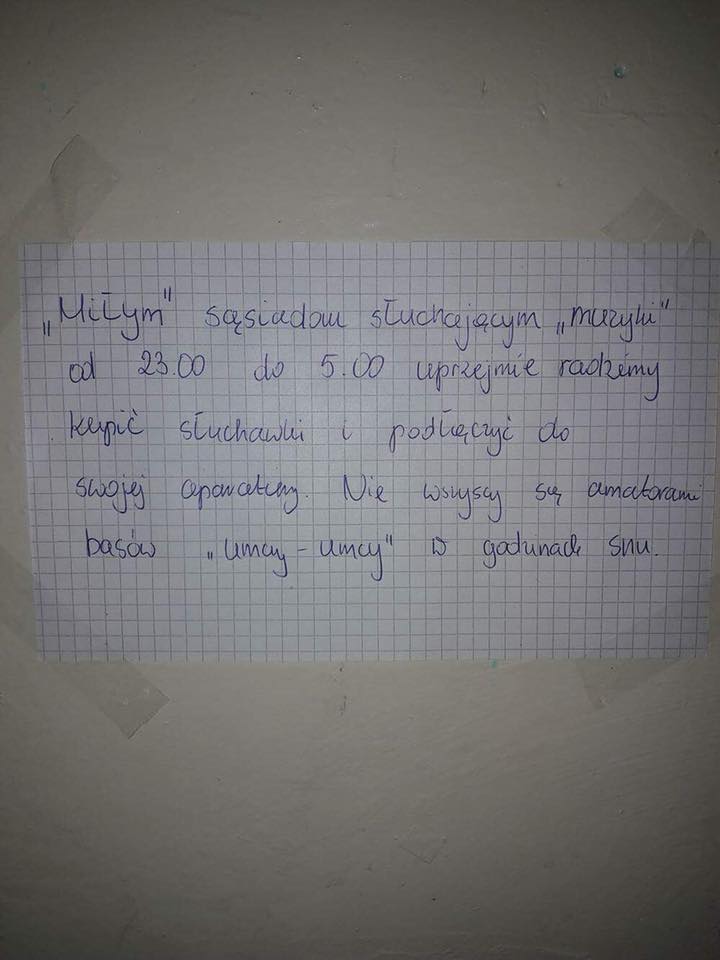 „Miłym" sąsiadom słuchającym „muzyki"
od 23.00 do 5.00 uprzejmie radzimy
kupić słuchawki i podłączyć do
swojej aparatury. Nie wszyscy są amatorami
basów „umcy-umcy" w godzinach snu.